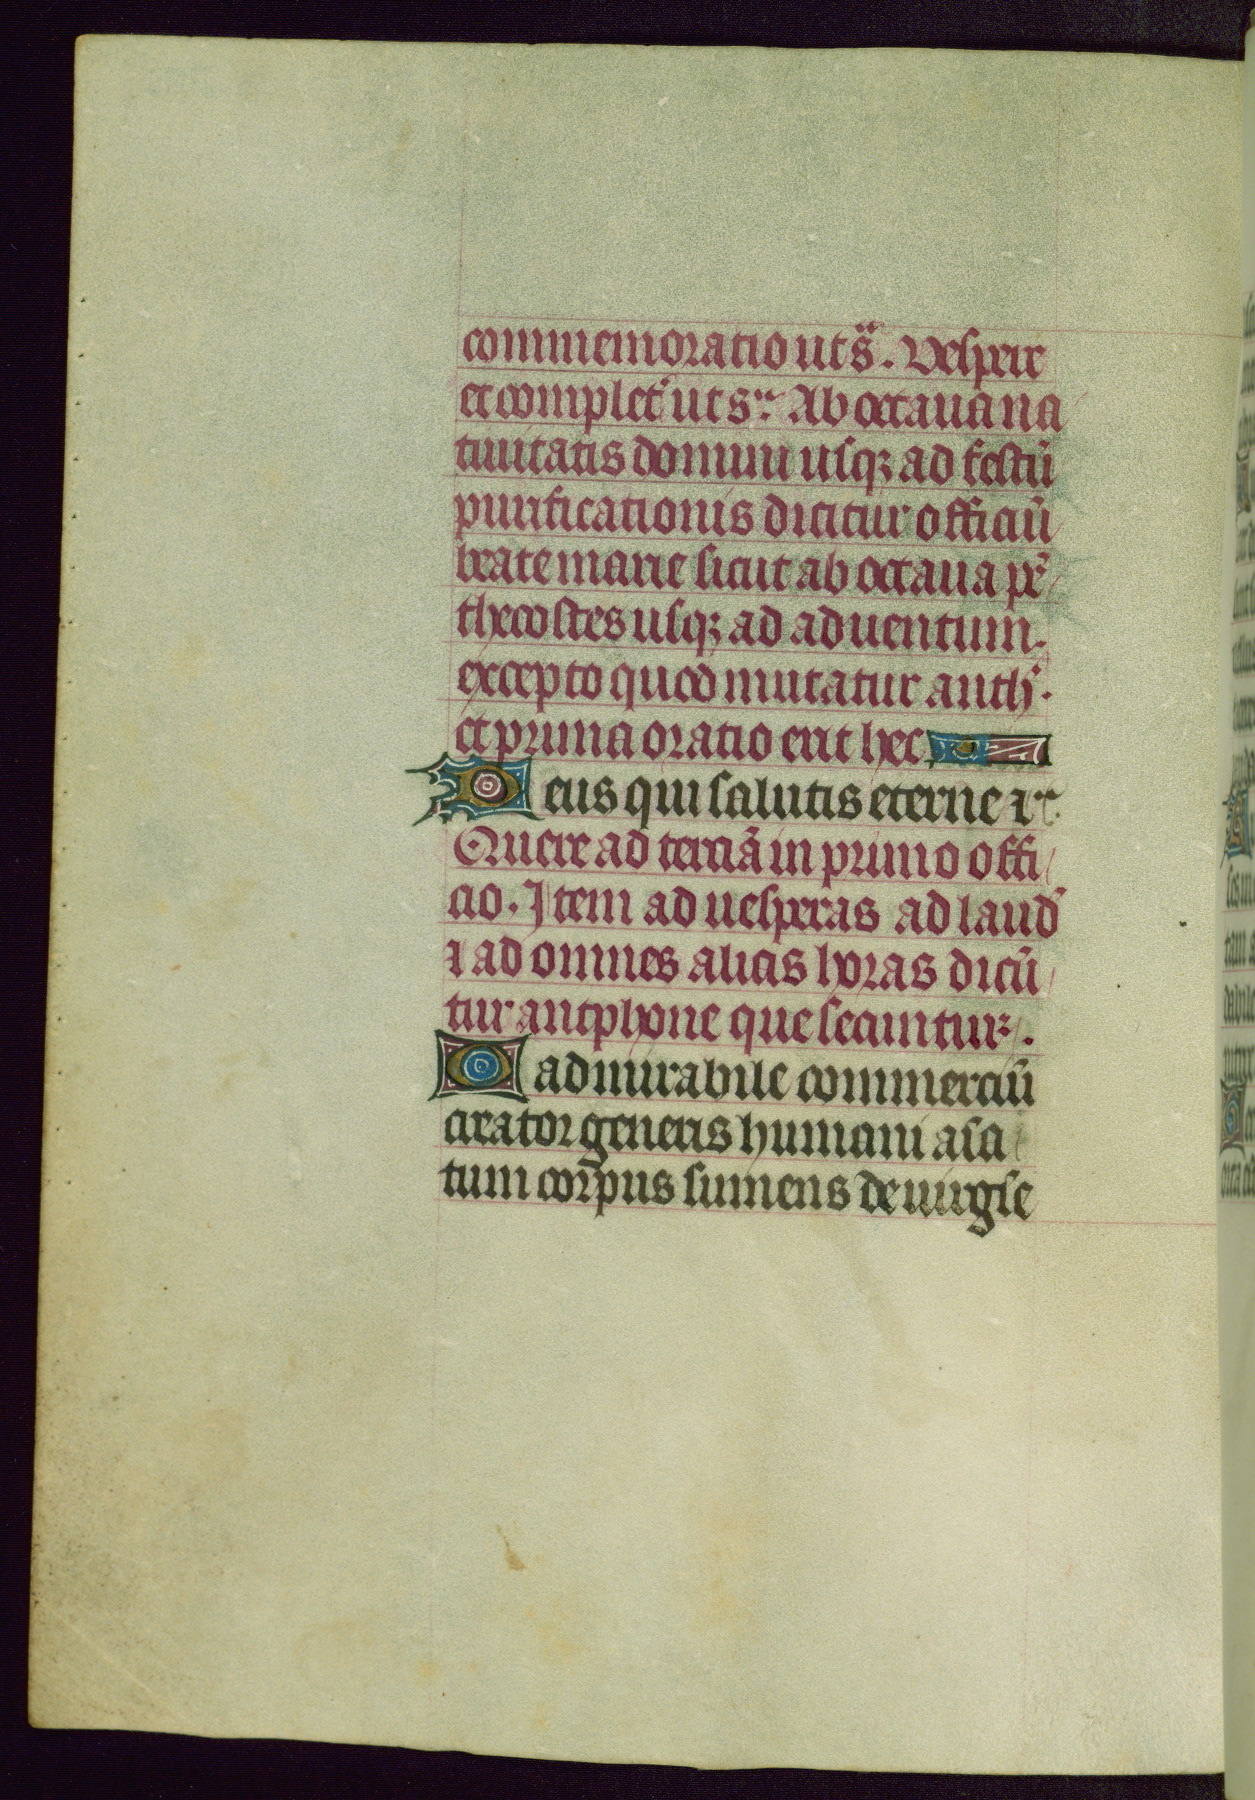 commemoratio ut sͣ. Vespere
et complet̄ ut sᵃ. Ab octaua na
tiuitatis domini usqꝫ ad festū
purificationis dicitur officiū
beate marie sicut ab octaua pē
thecostes usqꝫ ad aduentum.
excepto quod mutatur anth̄.
et prima oratio erit hec
Deus qui salutis eterne ⁊c̄.
Quere ad terciā in primo offi
cio. Item ad uesperas ad laud̄
⁊ ad omnes alias horas dicū
tur antiphone que secuntur.
O admirabile commerciū
creator generis humani aīa
tum corpus sumens de uirgīe